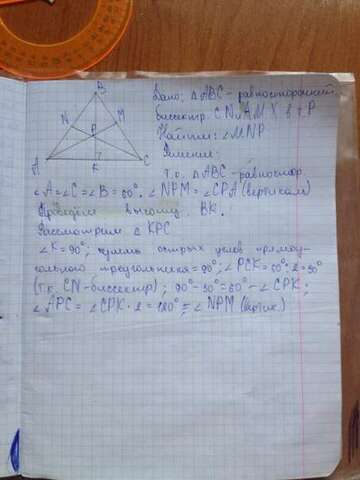 B
N
M
P
A
K
C
Дано: △ ABC - равносторонний
биссектр. CN и AM X в т. P
Найти: ∠MNP
Решение:
т.о. △ ABC - равностор.
∠A=∠C=∠B=60°, ∠NPM = ∠CPA (вертикал)
Проведем высоту BK.
Рассмотрим △ KPC
∠K=90°; сумма острых углов прямоу-
гольного треугольника = 90°; ∠PCK = 60°:2=30°
(т.к. CN - биссектр); 90°-30°=60° - ∠CPK;
∠APC = ∠CPK · 2 = 120° = ∠NPM (вертик.)